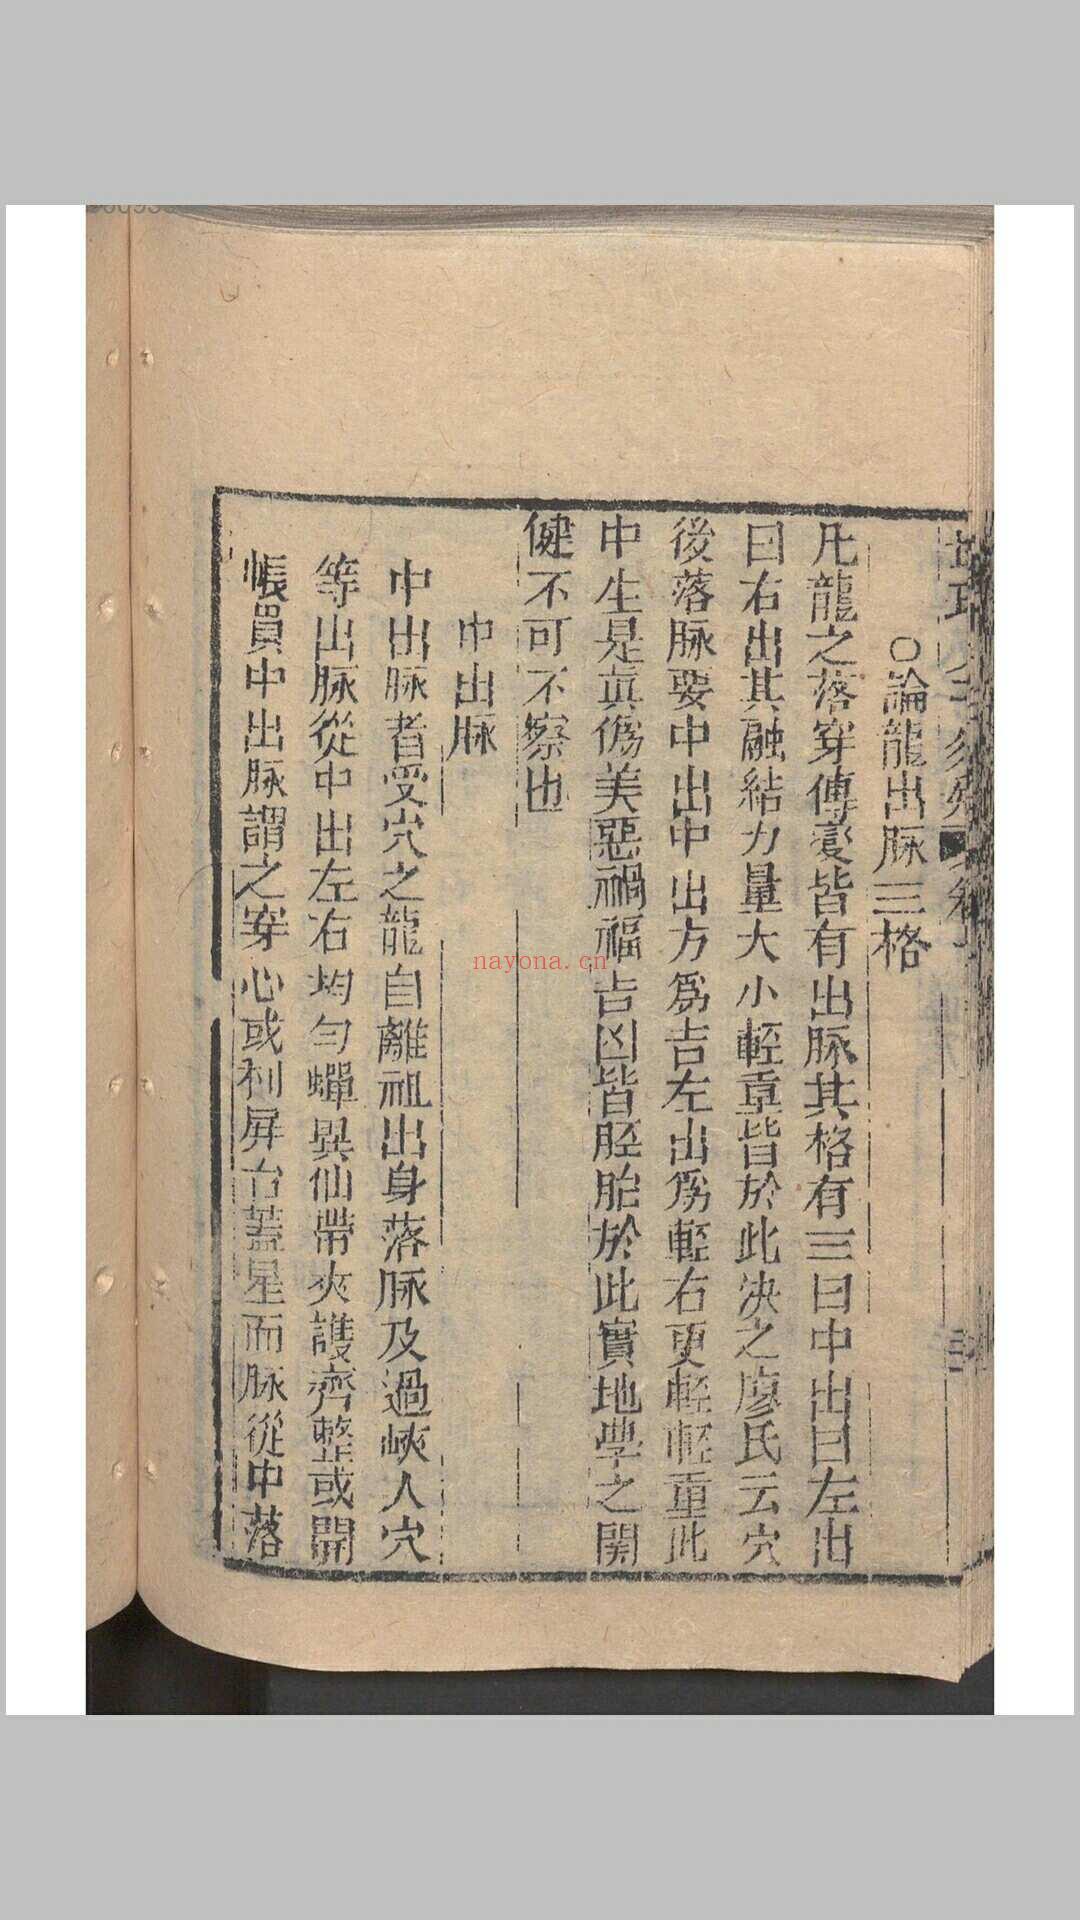 ○論龍出脉三格
凡龍之落穿傳變皆有出脉其格有三曰中出曰左出
曰右出其融結力量大小輕重皆於此决之廖氏云穴
後落脉要中出中出方爲吉左出爲輕右更輕輕重此
中生是眞僞美惡禍福吉凶皆胚胎於此實地學之関
健不可不察也
中出脉
中出脉者受穴之龍自離祖出身落脉及過峽人穴
等出脉從中出左右均勻蟬異仙帶夾護齊整或開
帳貫中出脉謂之穿心或列屏台蓋星而脉從中落
nayona.cn